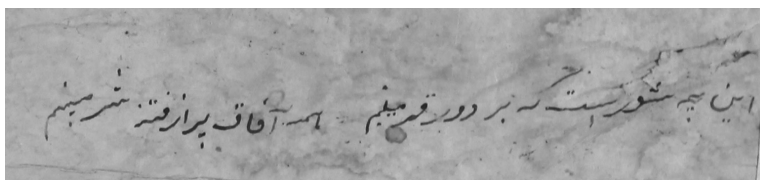 این چه شورست که بر دور قمر میبینم همه آفاق پر از فتنه شر میبینم